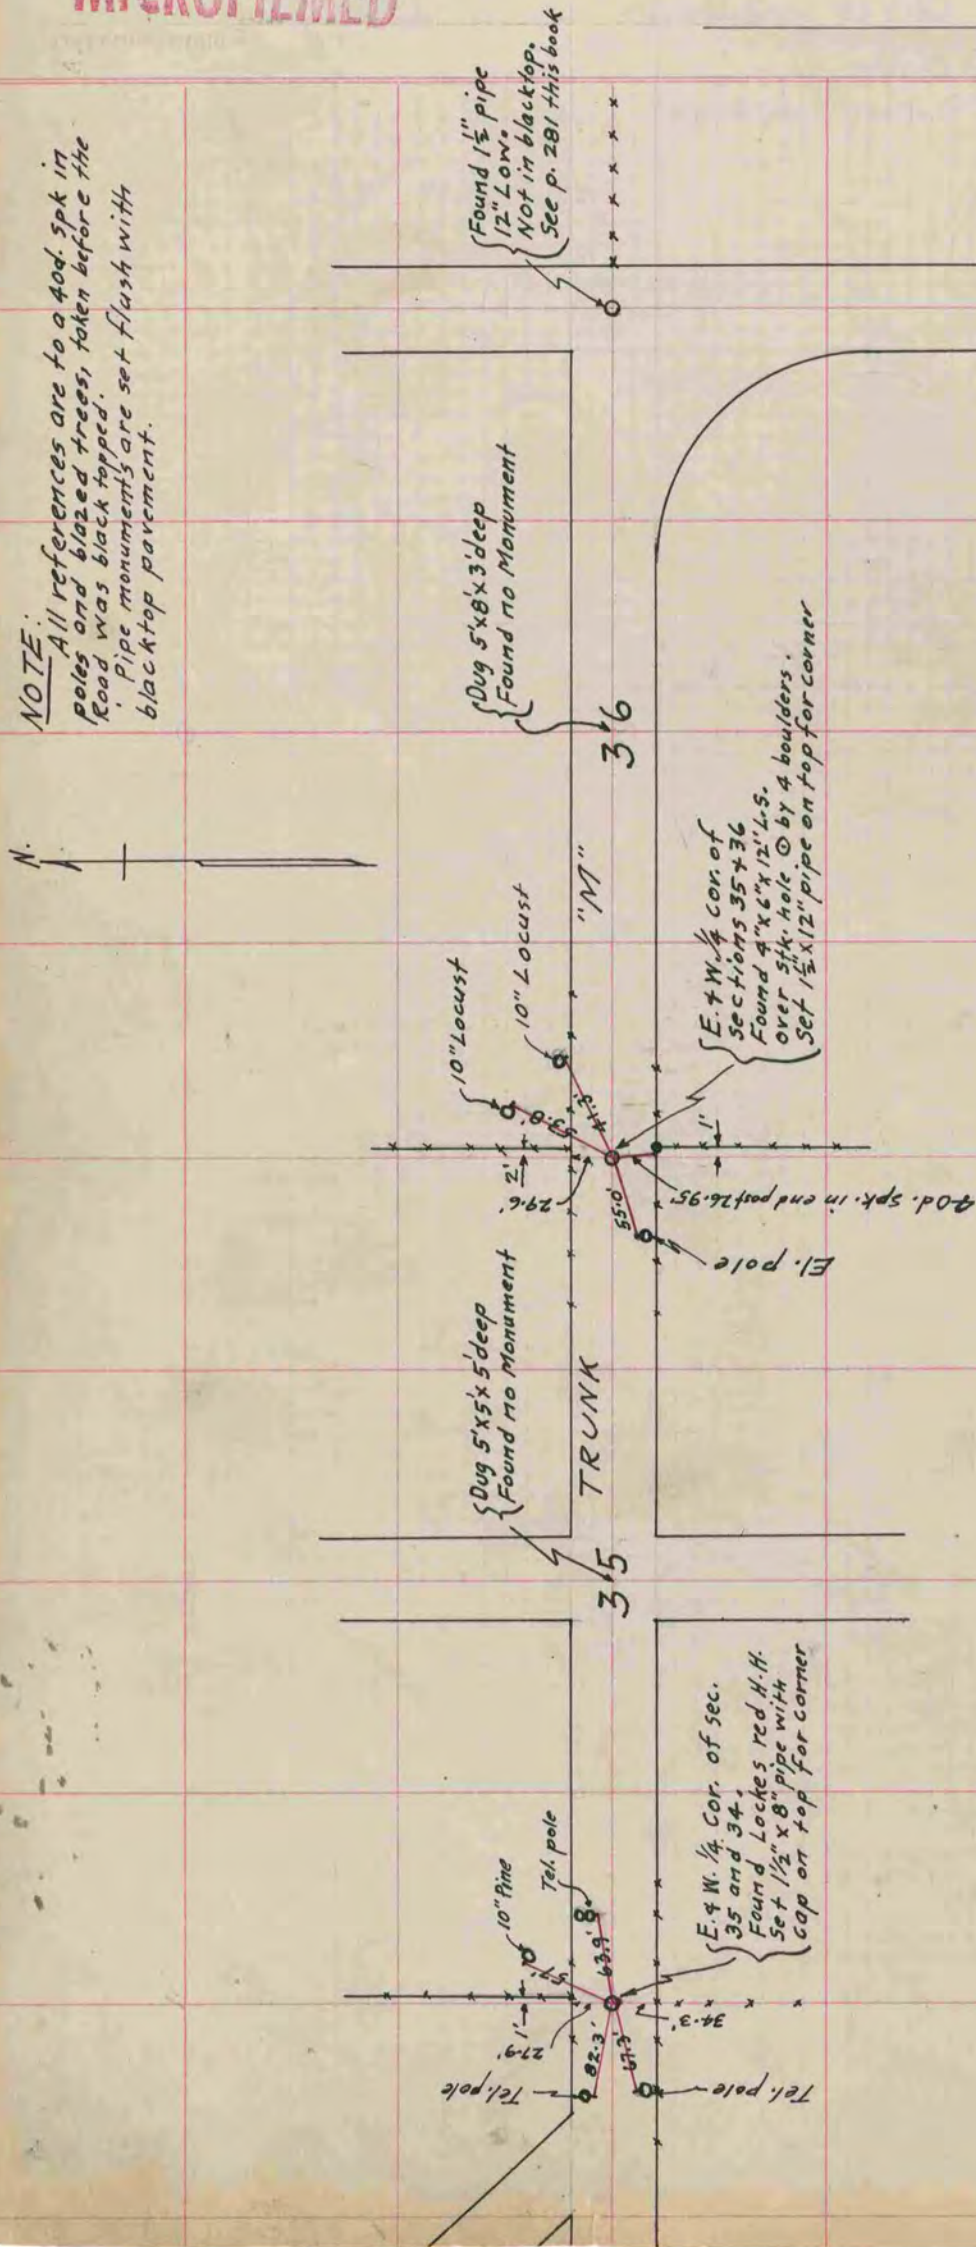 MICROFILMED
NOTE:
All references are to a 40d. spk in
poles and blazed trees, taken before the
Road was black topped.
Pipe monuments are set flush with
blacktop pavement.
N.
{Found 1½" pipe
12" Low.
Not in blacktop.
See p. 281 this book
{Dug 5'x8'x3' deep
Found no Monument
36
"M"
10" Locust
10" Locust
2'
29.6'
41.3'
55.0'
1'
40d. Spk. in end post 26.95'
El. pole
{E. & W. ¼ cor. of
Sections 35 & 36
Found 4"x6"x12" L.S.
over stk. hole ⊙ by 4 boulders.
Set 1½"x12" pipe on top for corner
{Dug 5'x5'x5' deep
Found no Monument
TRUNK
35
10" Pine
Tel. pole
63.9'
1'
27.9'
82.3'
Tel. pole
67.3'
34.3'
Tel. pole
{E. & W. ¼ Cor. of sec.
35 and 34.
Found Lockes red H.H.
Set 1½" x 8" pipe with
cap on top for corner